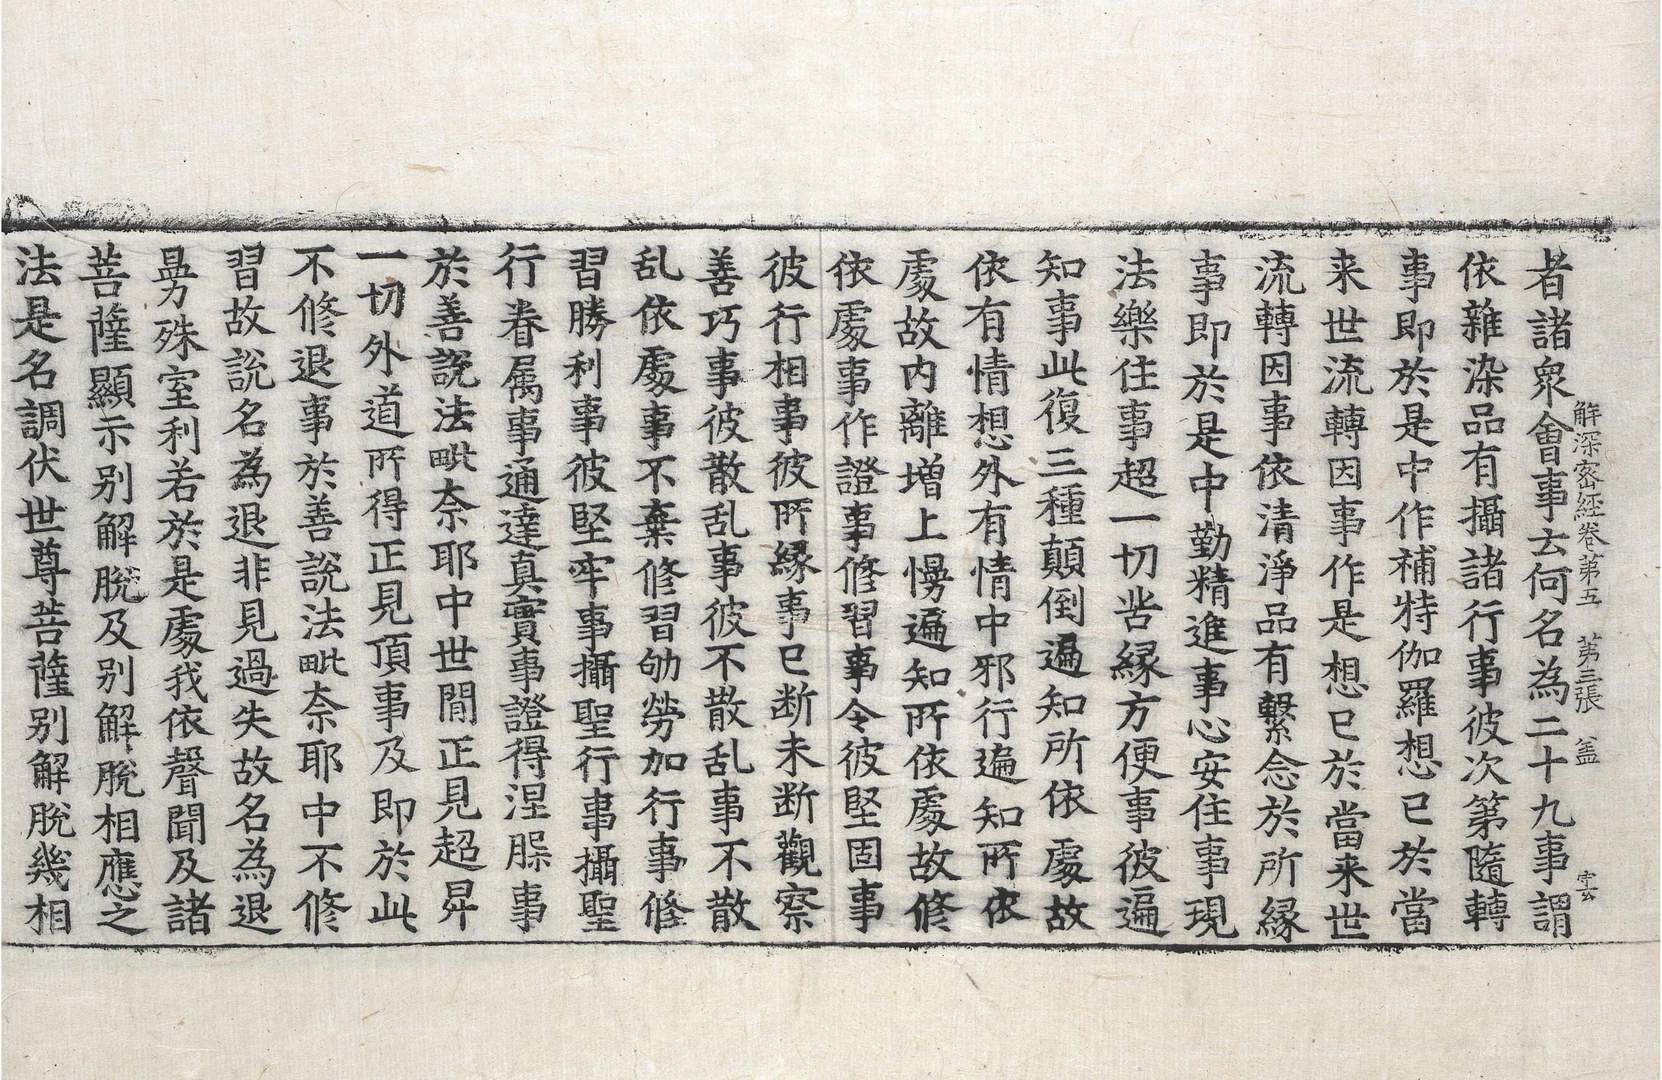 解深密經卷第五　第三張　盖　宝
者諸衆會事云何名為二十九事謂
依雜染品有攝諸行事彼次第隨轉
事即於是中作補特伽羅想已於當
来世流轉因事作是想已於當来世
流轉因事依清淨品有繫念於所緣
事即於是中勤精進事心安住事現
法樂住事超一切苦緣方便事彼遍
知事此復三種顛倒遍知所依處故
依有情想外有情中邪行遍知所依
處故内離增上慢遍知所依處故修
依處事作證事修習事令彼堅固事
彼行相事彼所緣事已断未断觀察
善巧事彼散乱事彼不散乱事不散
乱依處事不棄修習劬勞加行事修
習勝利事彼堅牢事攝聖行事攝聖
行眷属事通達真實事證得涅槃事
於善說法毗奈耶中世間正見超昇
一切外道所得正見頂事及即於此
不修退事於善說法毗奈耶中不修
習故說名為退非見過失故名為退
曼殊室利若於是處我依聲聞及諸
菩薩顯示别解脫及别解脫相應之
法是名調伏世尊菩薩别解脫幾相